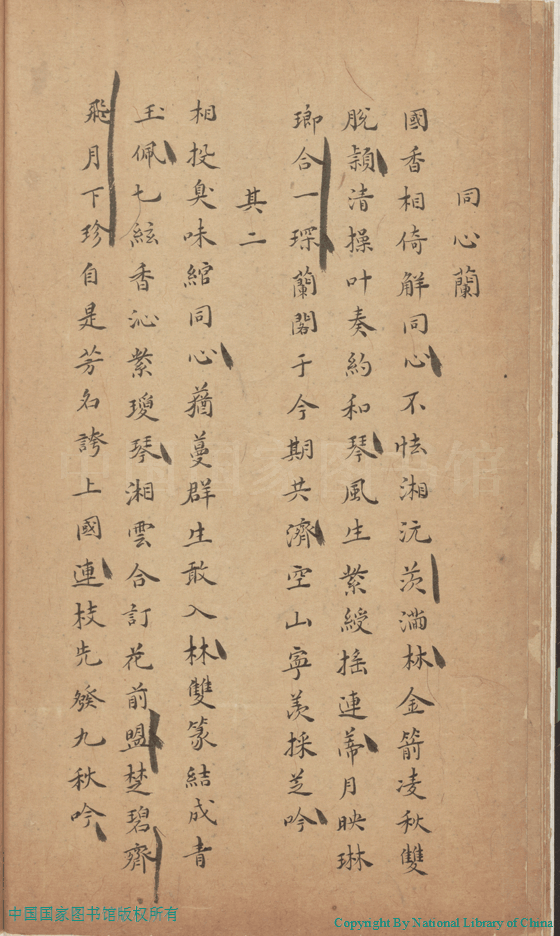 同心蘭
國香相倚解同心不怯湘沅茨滿林金箭凌秋雙
脫穎清操叶奏約和琴風生紫綬搖連蒂月映琳
瑯合一琛蘭閣于今期共濟空山寧羨採芝吟
其二
相投臭味綰同心蕕蔓群生敢入林雙篆結成青
玉佩七絃香沁紫瓊琴湘雲合訂花前盟楚碧齊
飛月下珍自是芳名誇上國連枝先發九秋吟
中国国家图书馆
中国国家图书馆版权所有
Copyright By National Library of China